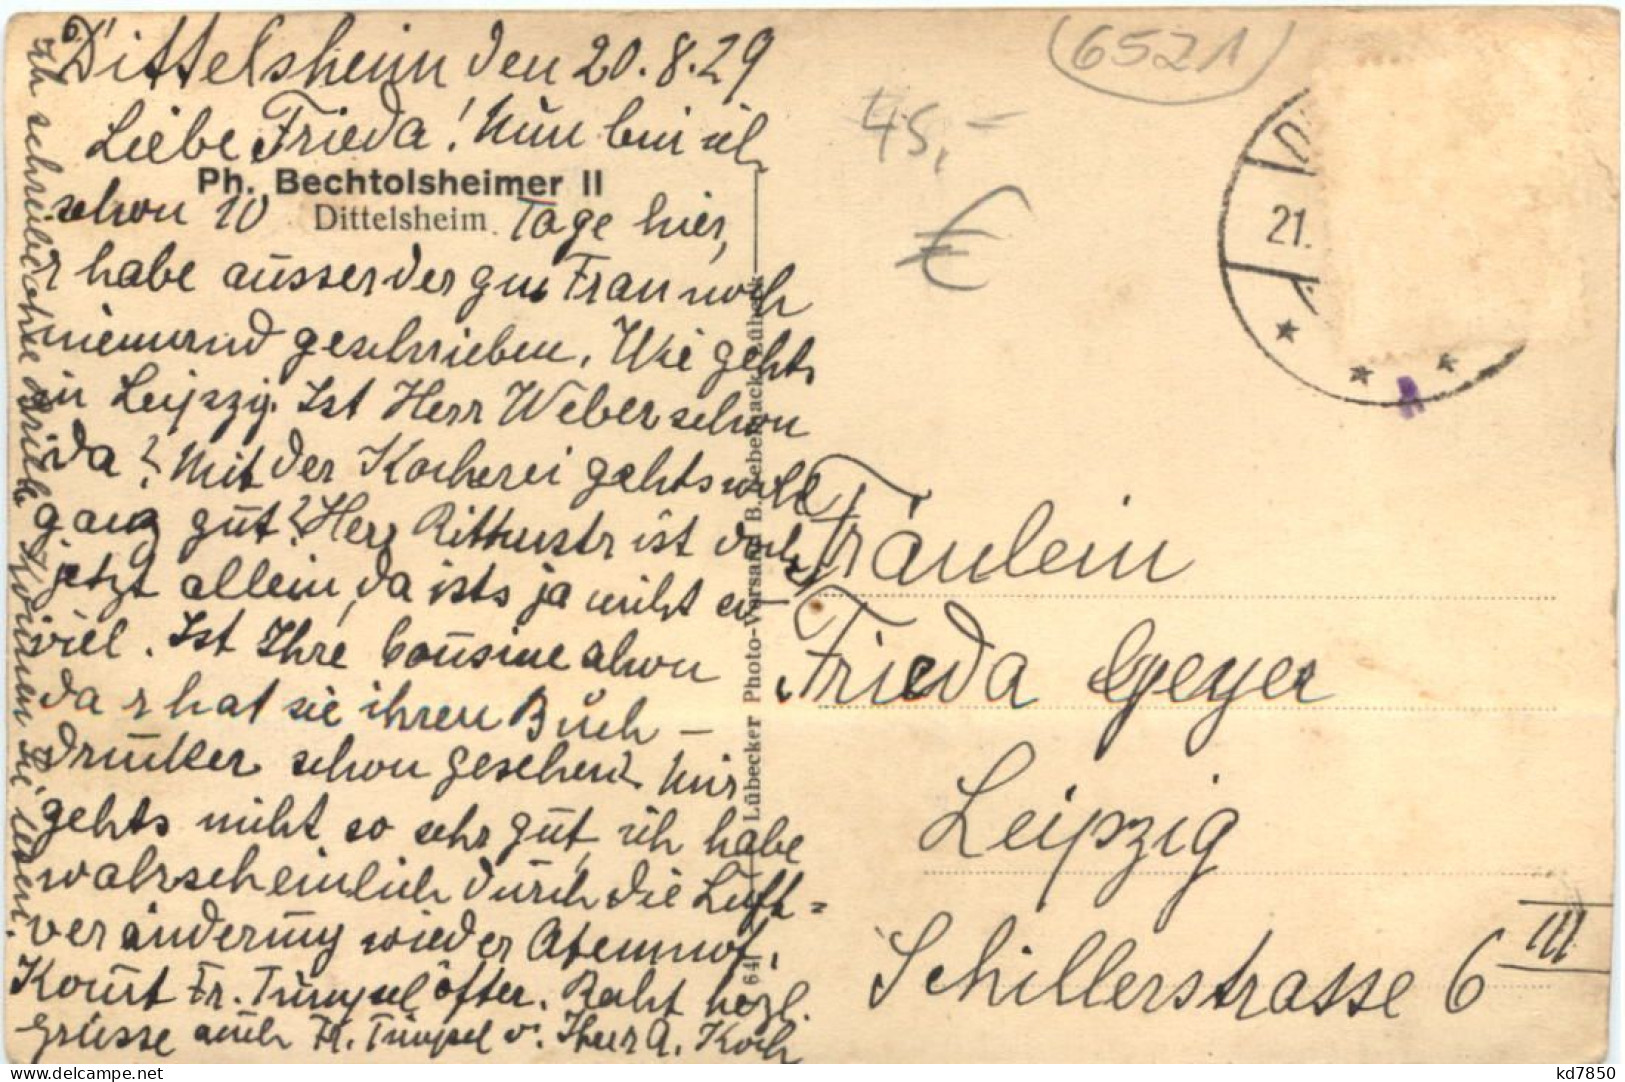 Dittelsheim den 20.8.29
Liebe Frieda! Nun bin ich
Ph. Bechtolsheimer II
schon 10 Tage hier,
Dittelsheim
habe ausser der gn Frau noch
niemand geschrieben. Wie gehts
in Leipzig. Ist Herr Weber schon
da? Mit der Kocherei gehts wohl
ganz gut? Herr ist doch
jetzt allein, da ists ja nicht so
viel. Ist Ihre Cousine schon
da & hat sie ihren Buch-
drucker schon gesehen? Mir
gehts nicht so sehr gut, ich habe
wahrscheinlich durch die Luft=
veränderung wieder Atemnot.
Komt Fr. Tümpel öfter. Recht herzl.
Grüsse auch Fr. Tümpel v. Ihrer A. Koch
Ich schreibe ohne Brille Können sie lesen.
Lübecker Photo-Versand B. Lübeck
641
6521
45,-
€
21.
Fräulein
Frieda Geyer
Leipzig
Schillerstrasse 6 III
kd7850